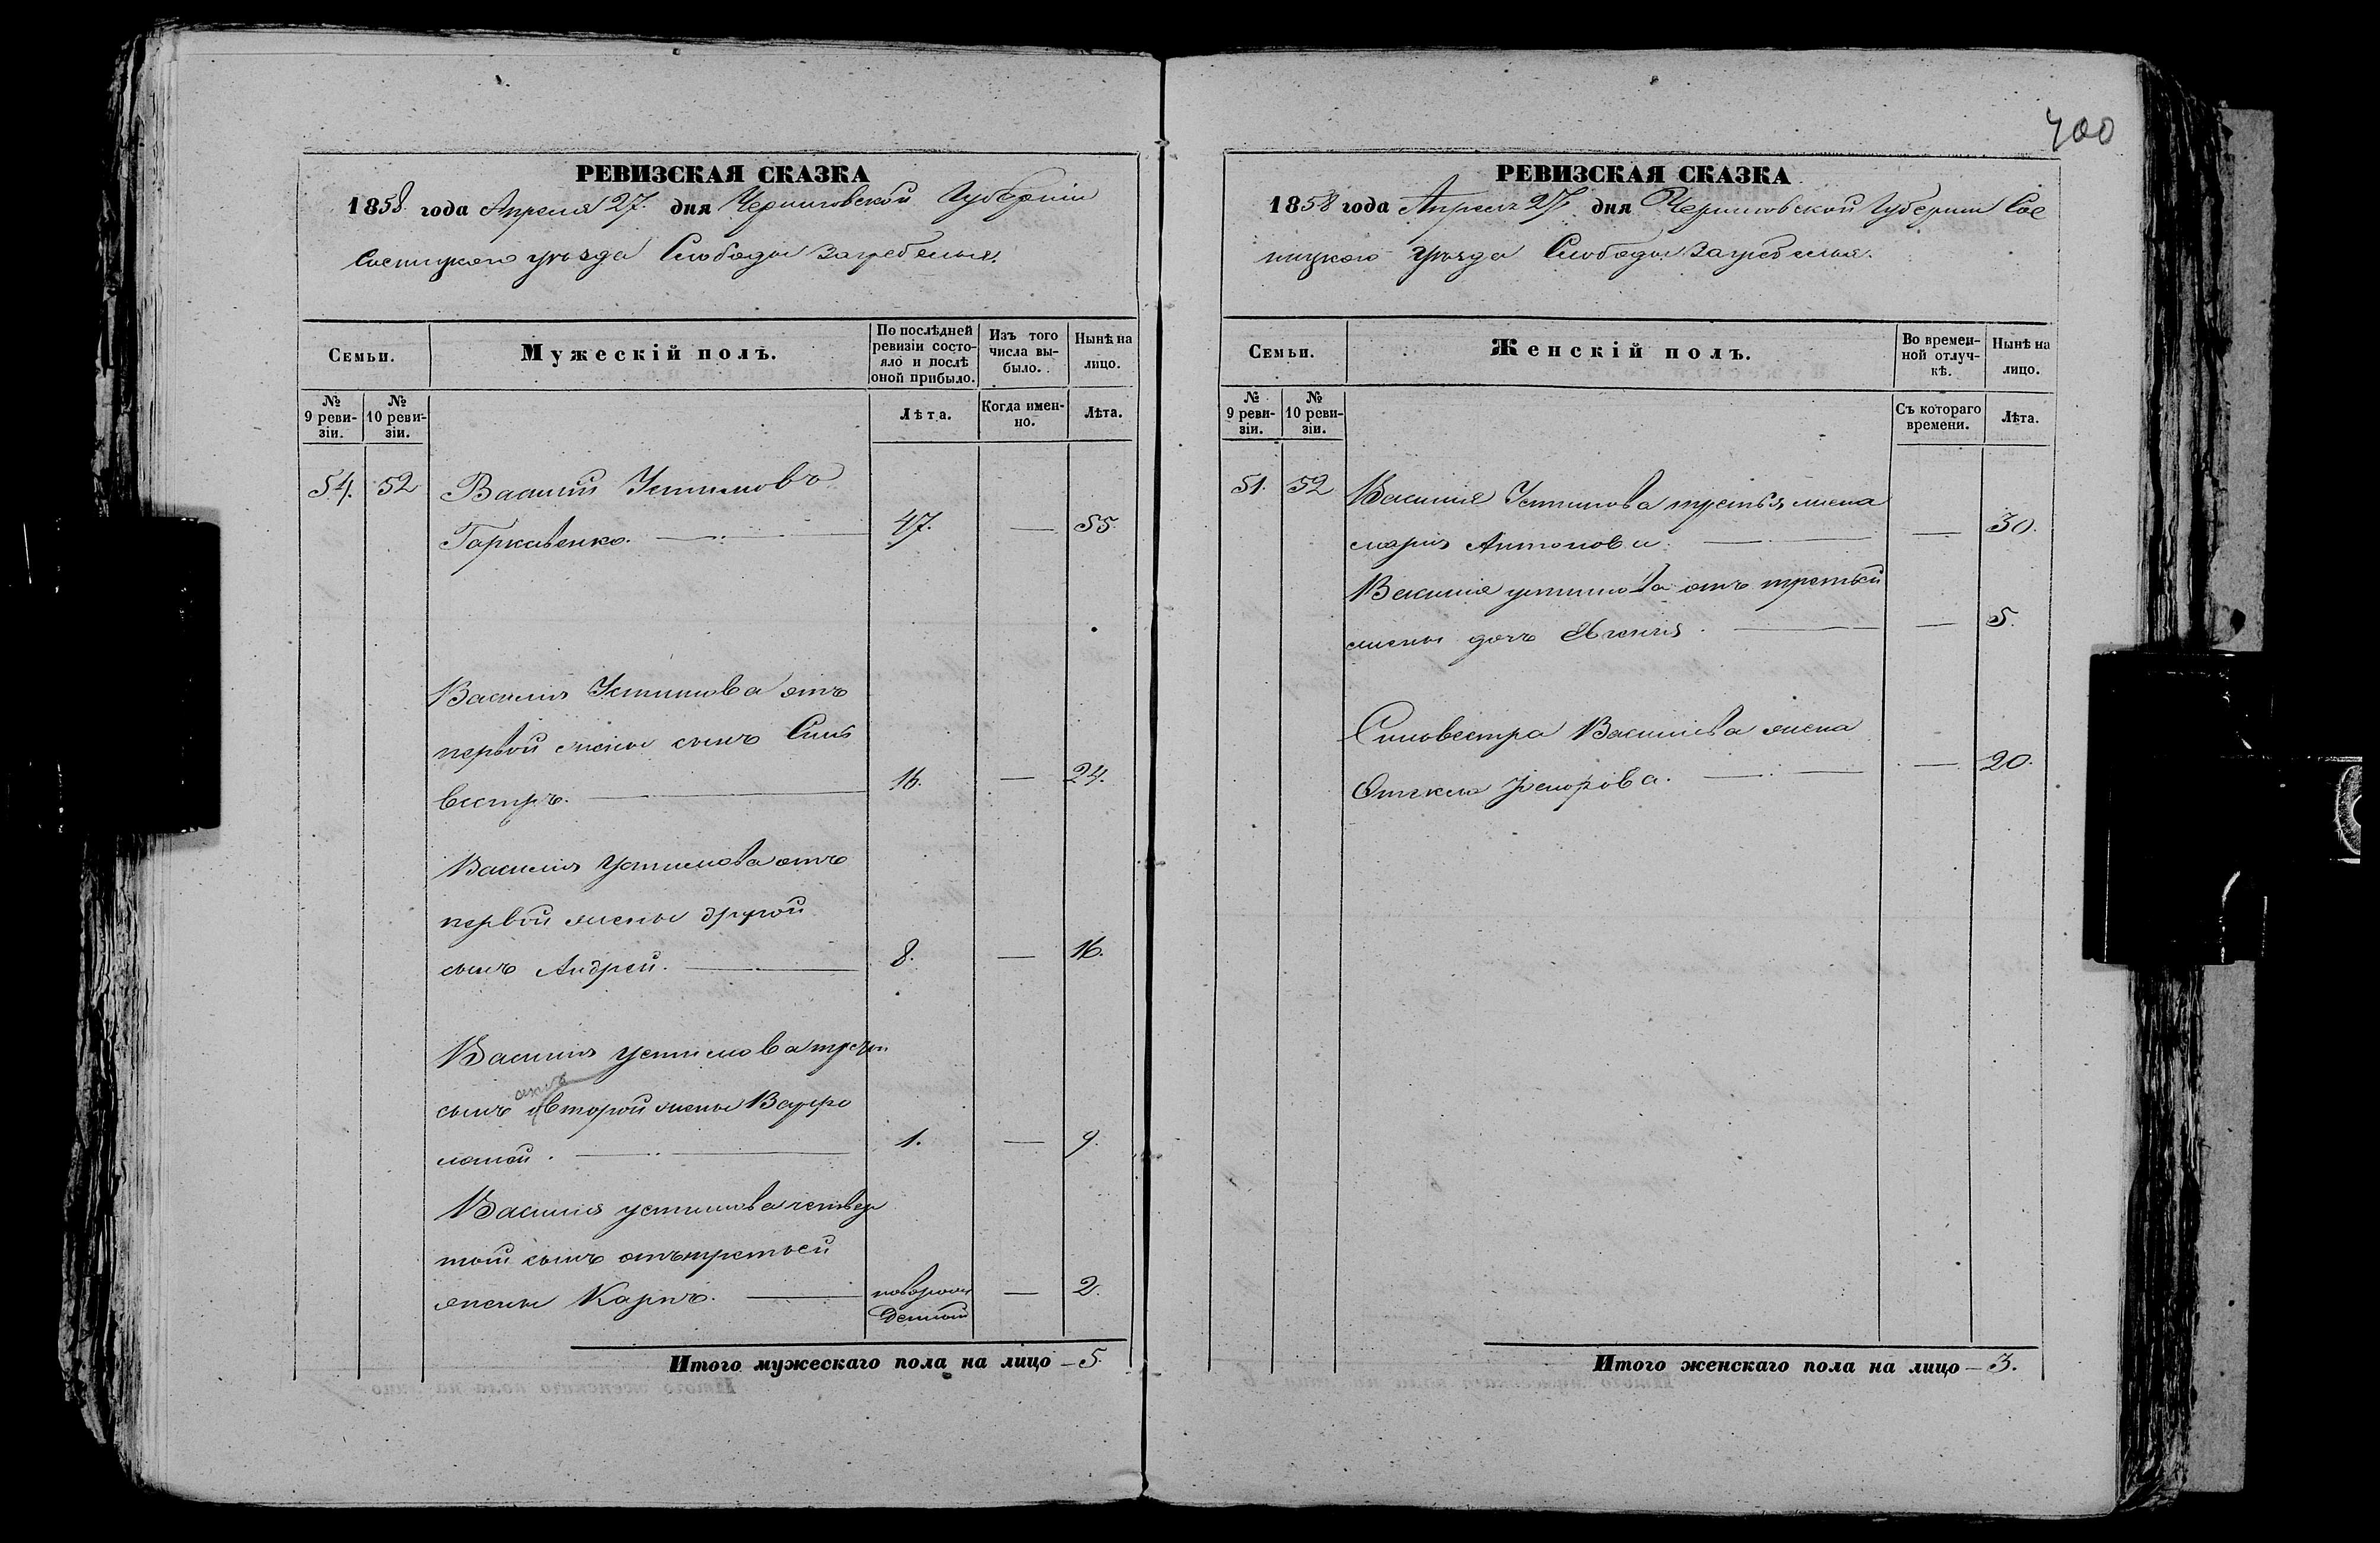 400
РЕВИЗСКАЯ СКАЗКА
1858 года Апреля 27. дня Черниговской Губерніи
Сосницкого уѣзда Слободы Загребелья.
Семьи.
Мужескій полъ.
По послѣдней ревизіи состояло и послѣ оной прибыло.
Изъ того числа выбыло.
Нынѣ на лицо.
№ 9 ревизіи.
№ 10 ревизіи.
Лѣта.
Когда именно.
Лѣта.
54. 52 Василій Устимовъ
Горкавенко. 47. — 55.
Василія Устимова отъ
первой жены сынъ Силь
вестръ. 16. — 24.
Василія Устимова отъ
первой жены другой
сынъ Андрей. 8. — 16.
Василія Устимова
отъ
сынъ второй жены Варфо
ломей. 1. — 9.
Василія устимова четвер
той сынъ отъ третьей
жены Карпъ. новорож
денной — 2.
Итого мужескаго пола на лицо — 5.
РЕВИЗСКАЯ СКАЗКА
1858 года Апреля 27 дня Черниговской Губерніи Сос
ницкого уѣзда Слободы Загребелья.
Семьи.
Женскій полъ.
Во временной отлучкѣ.
Нынѣ на лицо.
№ 9 ревизіи.
№ 10 ревизіи.
Съ котораго времени.
Лѣта.
51. 52 Василія Устимова третья жена
марія Антонова. — 30.
Василія устимова отъ третьей
жены дочь — 5.
Сильвестра Васильева жена
— 20.
Итого женскаго пола на лицо — 3.